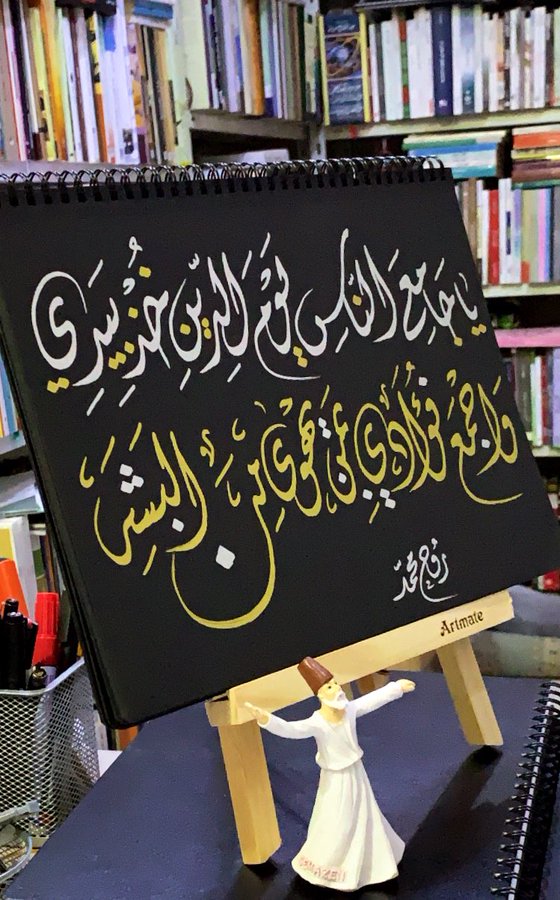 يا جَامِعَ النَّاسِ يَوْمَ الدِّينِ خُذْ بِيَدِي
وَاجْمَعْ فُؤَادِي عَنْ هَوَى مِنَ البَشَرِ
محمد
Artmate